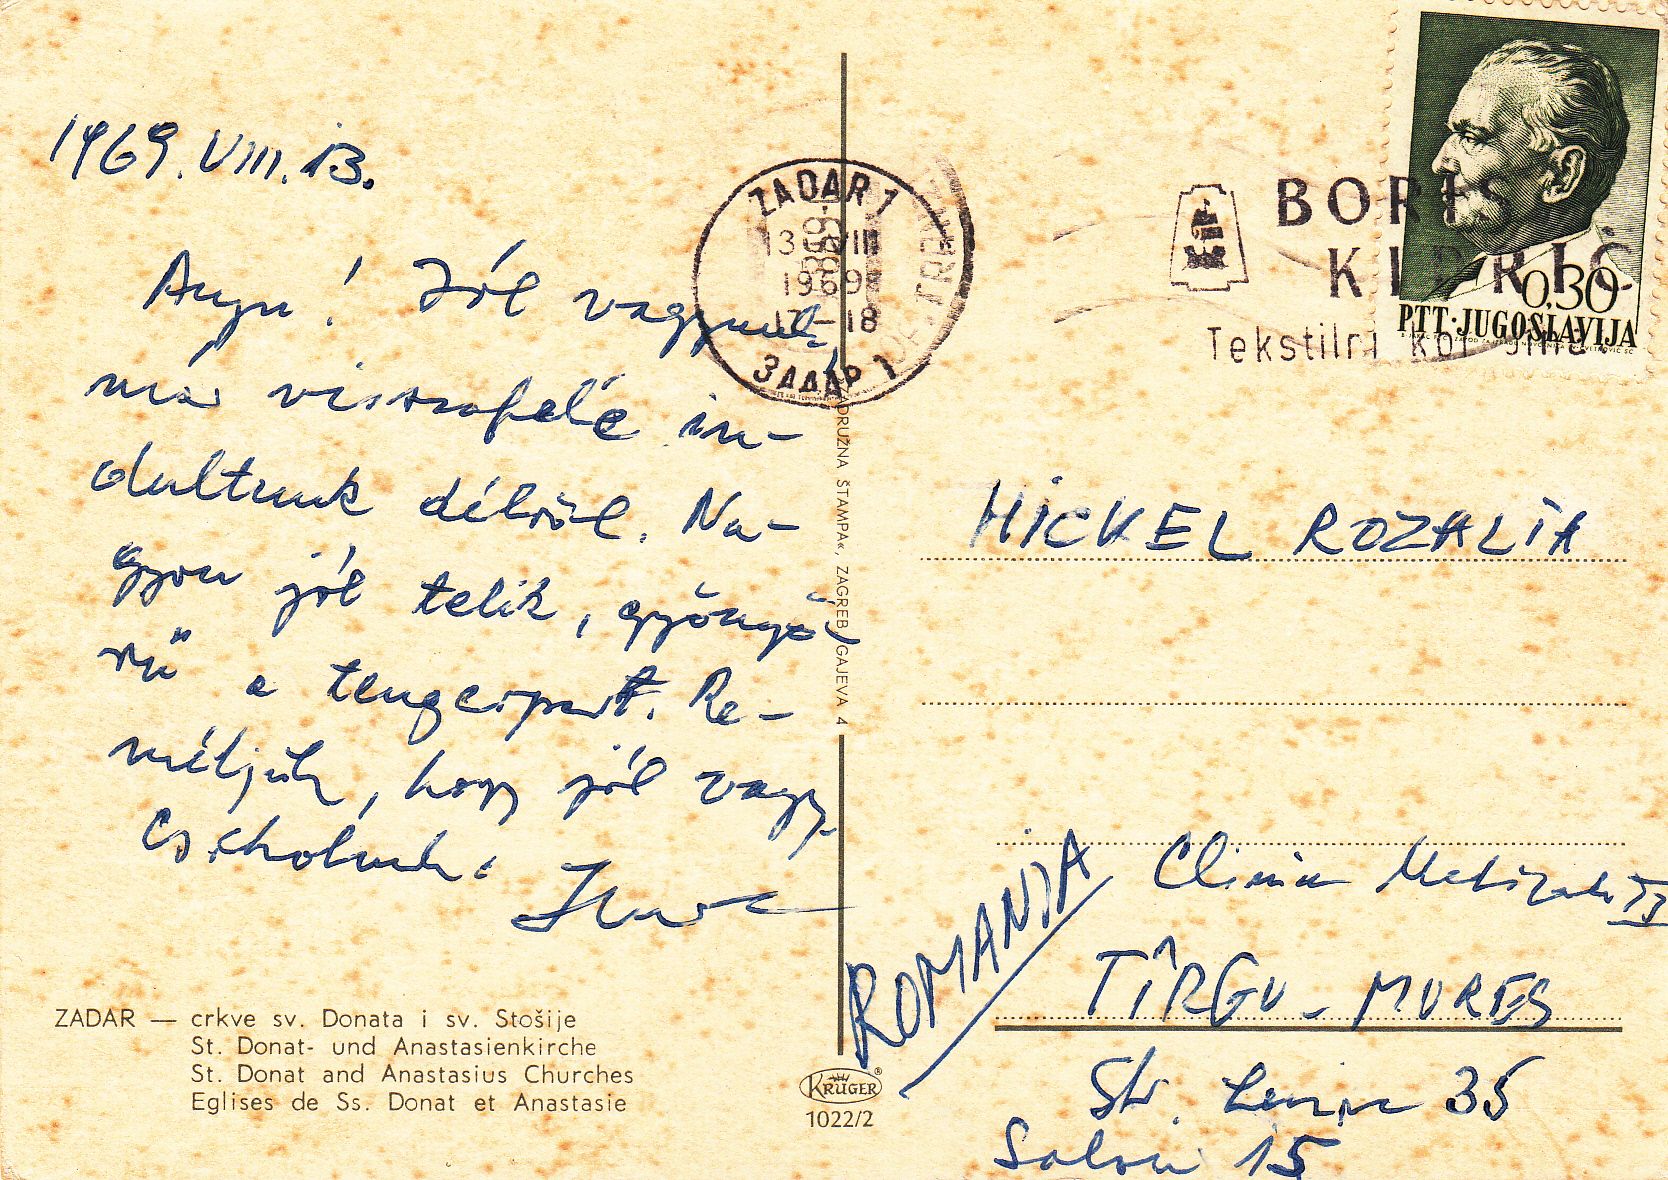 1969.VIII.13.
Anyu! Jól vagyunk,
már visszafelé in-
dultunk délről. Na-
gyon jól telik, gyönyö-
rű a tengerpart. Re-
méljük, hogy jól vagy.
Csókolunk:
ZADAR — crkve sv. Donata i sv. Stošije
St. Donat- und Anastasienkirche
St. Donat and Anastasius Churches
Eglises de Ss. Donat et Anastasie
ZADAR 1
13 VIII
1969
17-18
ЗАДАР 1
DRUŽNA ŠTAMPA«, ZAGREB GAJEVA 4
KRÜGER®
1022/2
BORIS
KIDRIČ
Tekstilni
0,30
PTT·JUGOSLAVIJA
HICKEL ROZALIA
ROMANIA
Clinica
II
TÎRGU-MURES
Str. Lenin 35
Salon 15